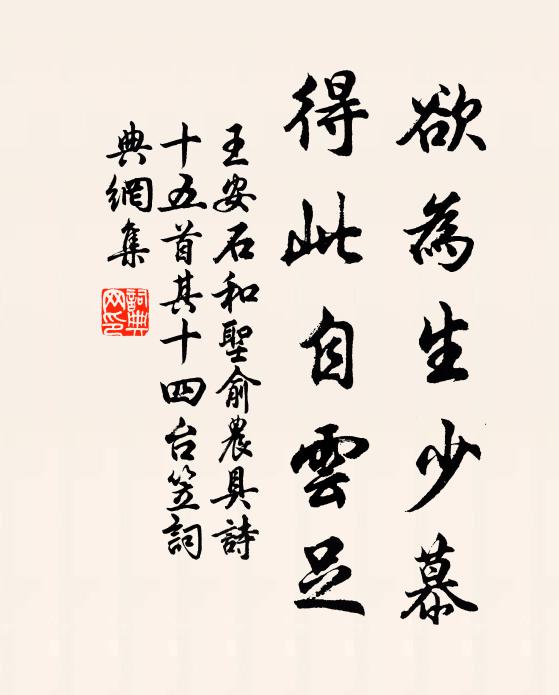 欲為生少慕
得此自雲足
王安石和聖俞農具詩
十五首其十四台笠詞
典網集
詞典网印